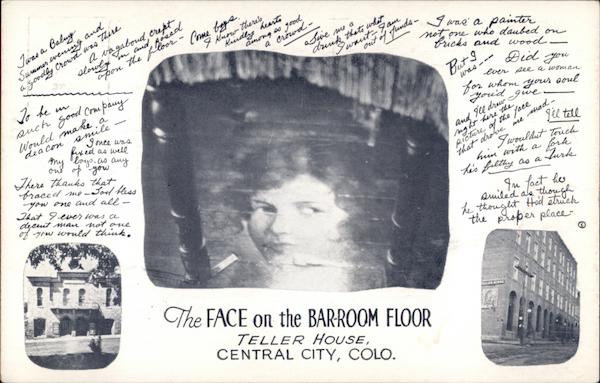 Twas a Balmy
Summer evening and
a goodly crowd was there
A vagabond crept
slowly in and posed
upon the floor
Come boys
I know there's
kindly hearts
among so good
a crowd—
Give me a
drink thats what
I want— I am
out of funds—
I was a painter
not one who daubed on
bricks and wood—
But I
was— Did you
ever see a woman
for whom your soul
you'd give—
and I'll draw
right here the
picture of the face
that drove me mad—
To be in
such good company
Would make a
deacon smile—
I once was
fixed as well
my boys as any
one of you
There thanks that
braced me—God bless
you one and all—
That I ever was a
decent man not one
of you would think.
I'll tell
I wouldn't touch
him with a fork
he's filthy as a Turk
In fact he
smiled as though
he thought He'd struck
the proper place
The FACE on the BAR-ROOM FLOOR
TELLER HOUSE,
CENTRAL CITY, COLO.